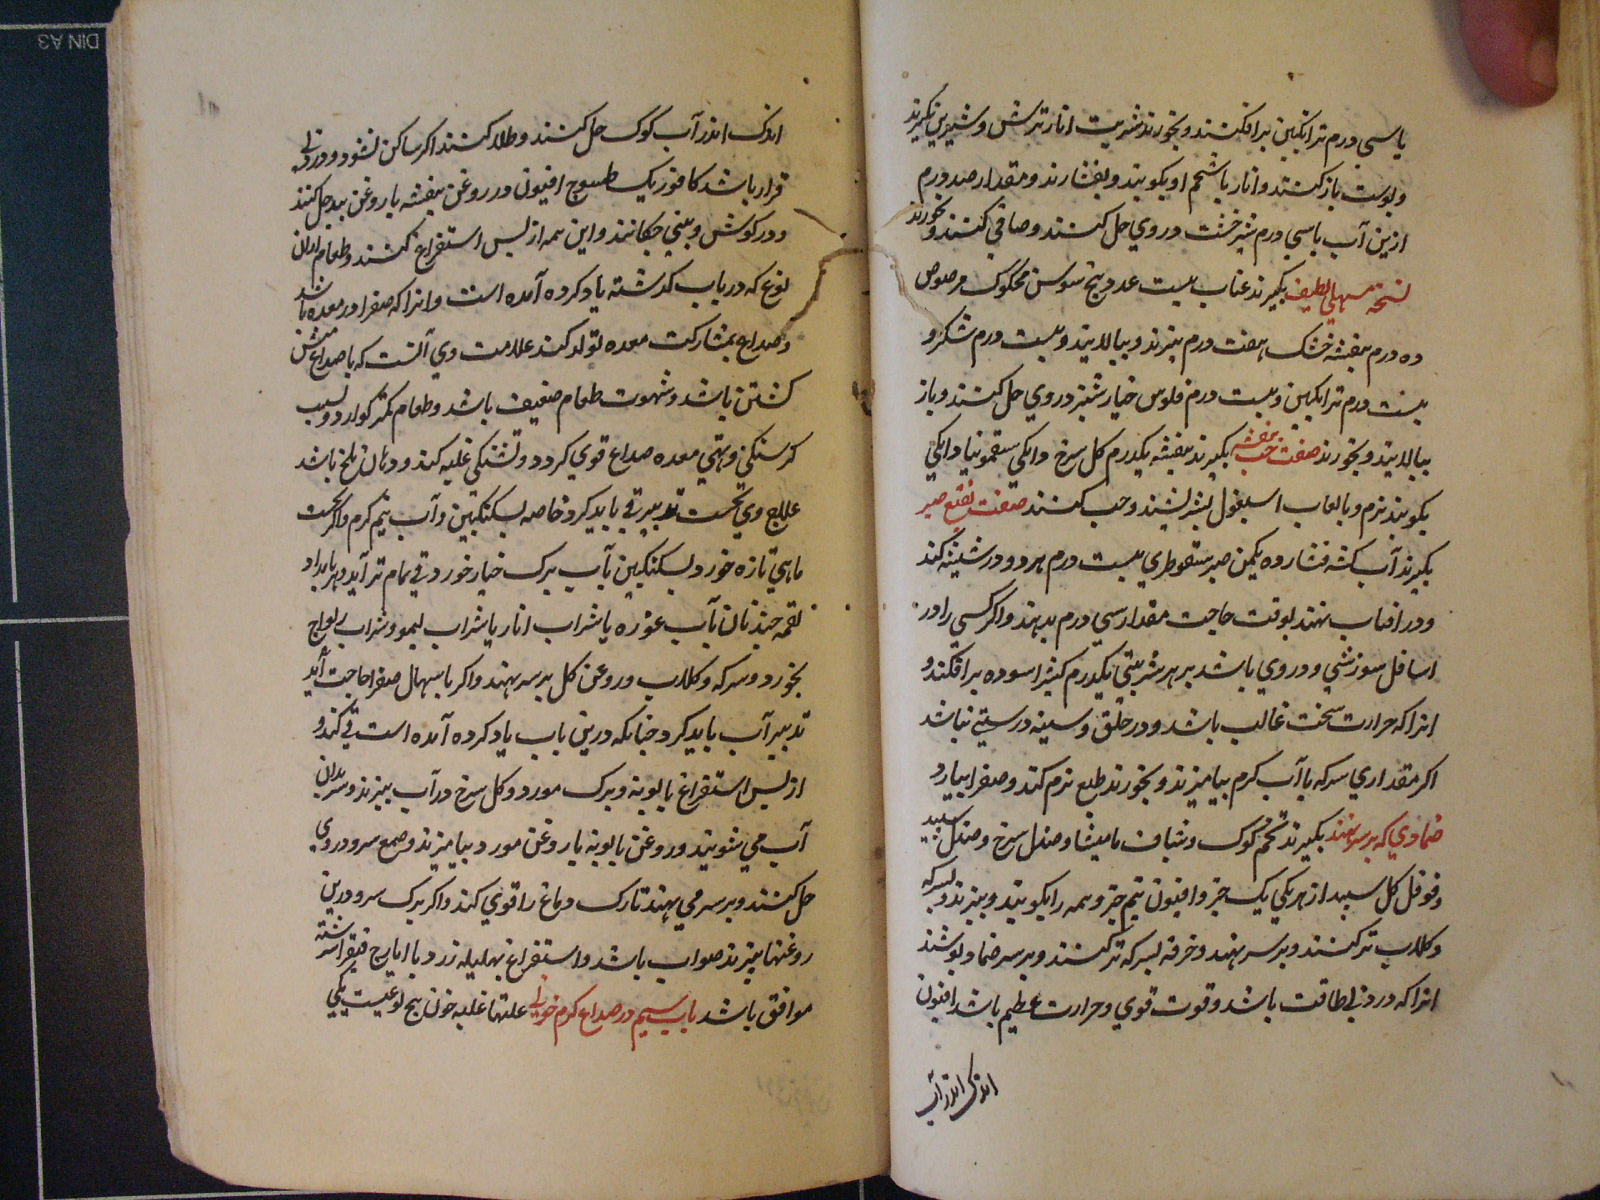 یا سی درم ترانکبین برافکنند و بخورند شربت انار ترش و شیرین بکیرند
و پوست باز کنند و انار با شحم او بکوبند و بفشارند و مقدار صد درم
ازین آب با سی درم شیرخشت در وی حل کنند و صافی کنند و بخورند
نسخه مسهلی لطیف بکیرند عناب بیست عدد بیخ سوس محکوک مرضوض
ده درم بنفشه خشک هفت درم بپزند و ببالایند و بیست درم شکر و
بیست درم ترانکبین و بیست درم فلوس خیارشنبر در وی حل کنند و باز
ببالایند و بخورند صفت حب بنفشه بکیرند بنفشه یکدرم کل سرخ دانکی سقمونیا دانکی
بکوبند نرم و بالعاب اسبغول بسریشند و حب کنند صفت نقیع صبر
بکیرند آب کشنه فشارده یکمن صبر سقوطری بیست درم هر دو در شیشه کنند
و در افتاب نهند بوقت حاجت مقدار سی درم بدهند و اکر کسی را در
اسافل سوزشی و دردی باشد بر هر شربتی یکدرم کثیرا سوده برافکنند و
انرا که حرارت سخت غالب باشد و در حلق و سینه درستی نباشد
اکر مقداری سرکه با آب کرم بیامیزند و بخورند طبع نرم کند و صفرا بیارد
ضمادی که بر سر نهند بکیرند تخم کوک و شیاف مامیثا و صندل سرخ و صندل سپید
و فوفل کل سپید از هر یکی یک جزو افیون نیم جزو همه را بکوبند و بپزند و بسرکه
و کلاب تر کنند و بر سر نهند و خرقه بسرکه تر کنند و بر سر ضماد پوشند
انرا که درد بی طاقت باشد و قوت قوی و حرارت عظیم باشد افیون
اندک اندر آب
اندک اندر آب کوک حل کنند و طلا کنند اکر ساکن نشود و درد بی
قرار باشد کافور یک طسوج افیون در روغن بنفشه یا روغن بید حل کنند
و در کوش و بینی چکانند و این همه از پس استفراغ کنند و طعام ازان
نوع که در باب کذشته یاد کرده آمده است و انرا که صفرا در معده باشد
و صداع بمشارکت معده تولد کند علامت وی آنست که با صداع منش
کشتن باشد و شهوت طعام ضعیف باشد و طعام کمتر کوارد و بسبب
کرسنکی و تهی معده صداع قوی کردد و تشنکی غلبه کند و دهان تلخ باشد
علاج وی نخست تدبیر قی باید کرد خاصه بسکنکبین و آب نیم کرم و اکر نخست
ماهی تازه خورد بسکنکبین با آب برک خیار خورد قی تمام تر آید و هر بامداد
لقمه چند نان با آب غوره یا شراب انار یا شراب لیمو و شراب ریواج
بخورد و سرکه و کلاب و روغن کل بر سر نهند و اکر باسهال صفرا حاجت آید
تدبیر آب باید کرد چنانکه درین باب یاد کرده آمده است قی کند و
از پس استفراغ بابونه و برک مورد و کل سرخ در آب بپزند و سر بدان
آب می شویند و روغن بابونه یا روغن مورد بیامیزند و صمغ سرو در وی
حل کنند و بر سر می نهند تارک دماغ را قوی کند و اکر برک سرو درین
روغنها بپزند صواب باشد و استفراغ بهلیله زرد با ایارج فیقرا سرشته
موافق باشد باب سیم در صداع کرم خونی علتها غلبه خون پنج نوعیست یکی